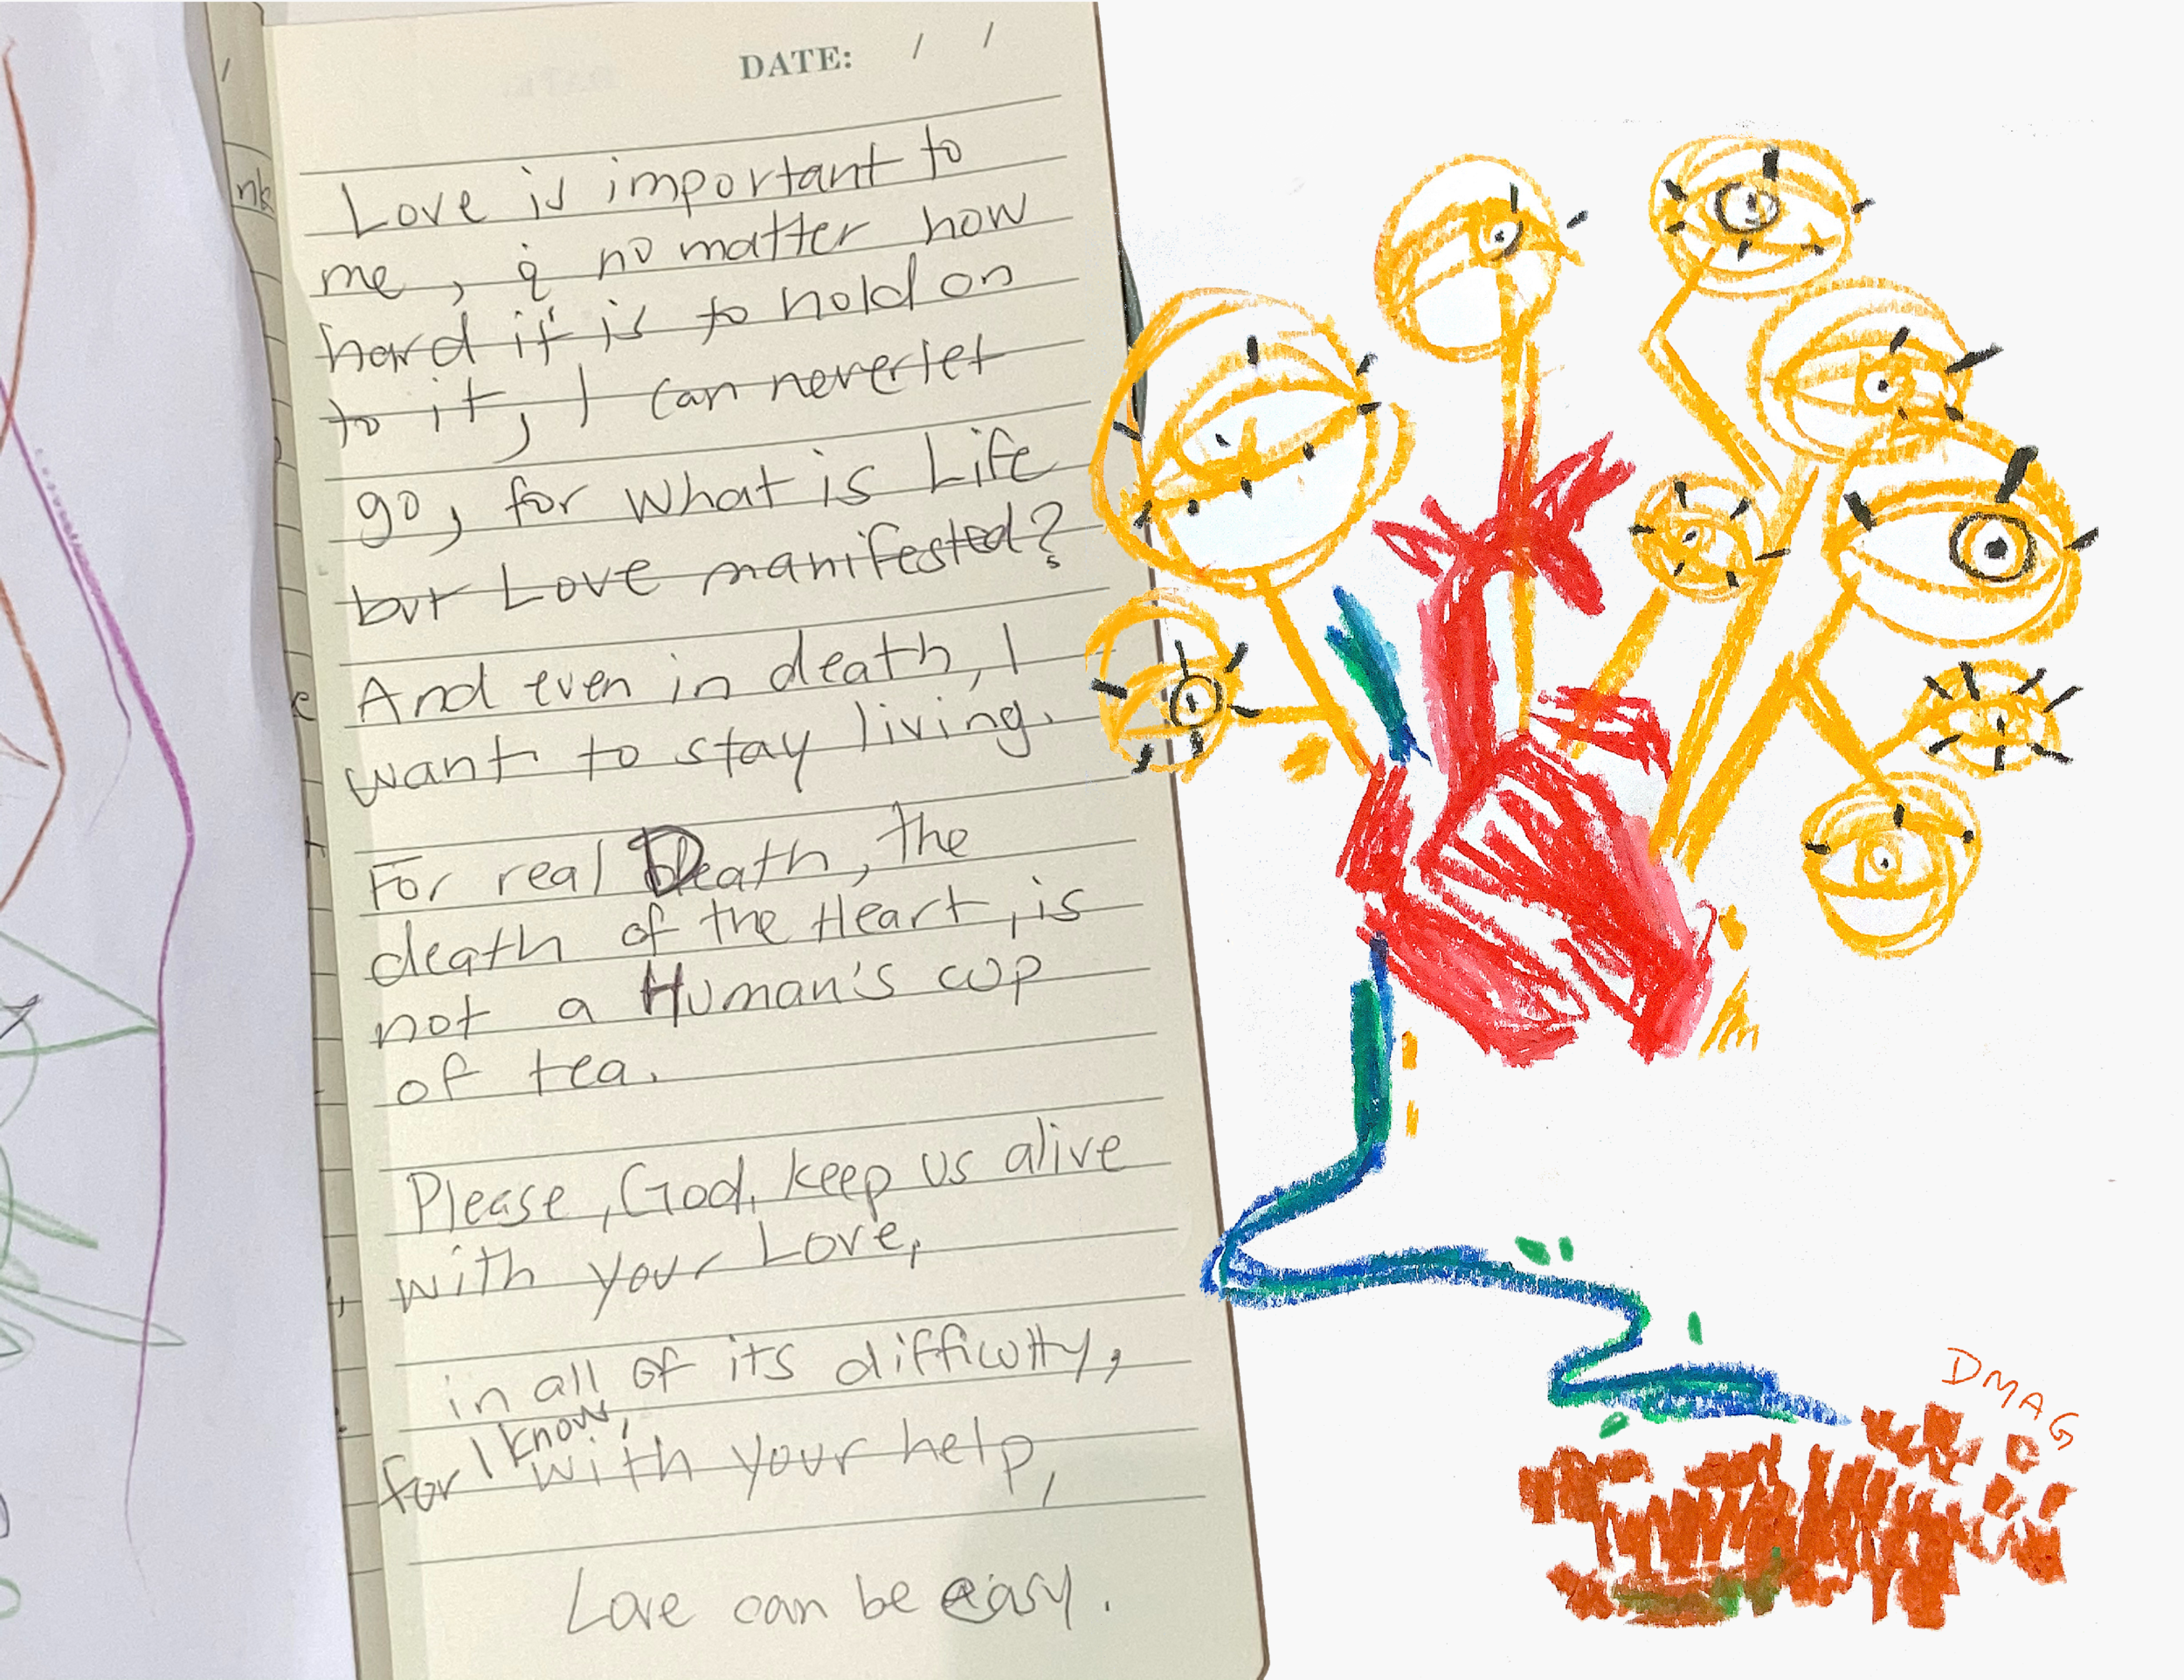 DATE: / /
Love is important to
me, & no matter how
hard it is to hold on
to it, I can never let
go, for what is Life
but Love manifested?
And even in death, I
want to stay living.
For real Death, the
death of the Heart, is
not a Human's cup
of tea.
Please, God, keep us alive
with your Love,
in all of its difficulty,
for I know, with your help,
Love can be easy.
DMAG